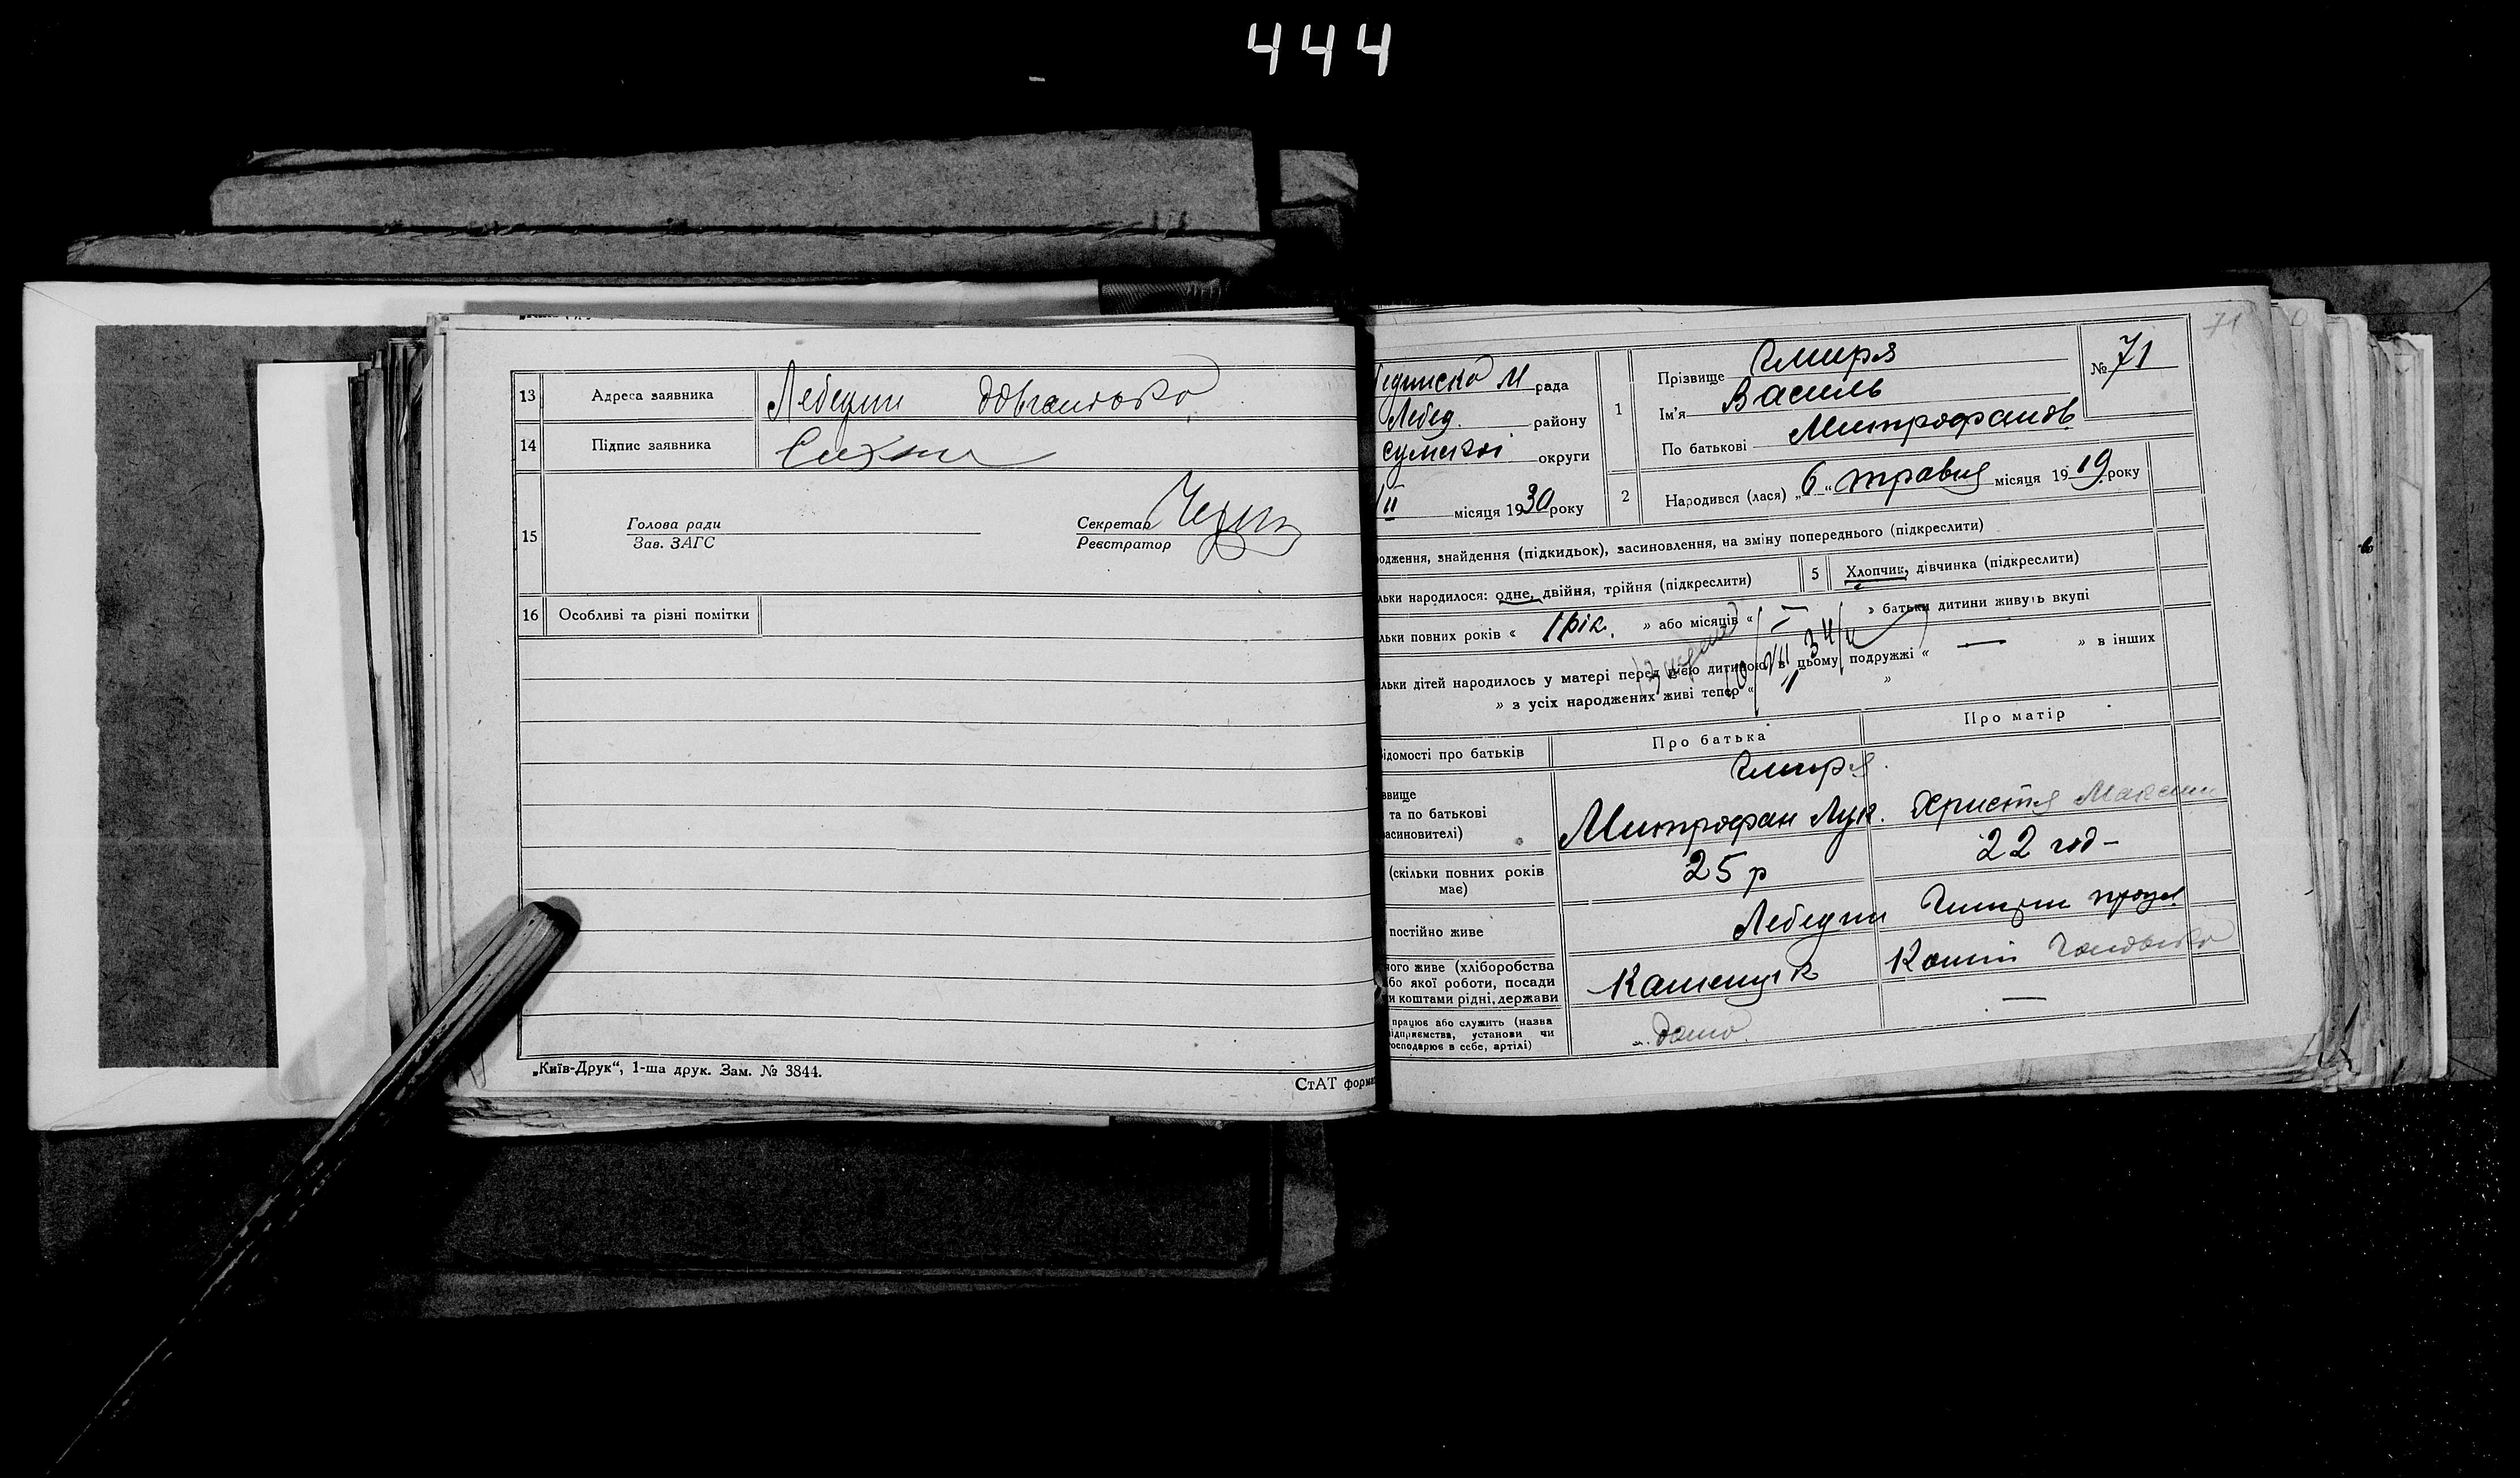 444
13 Адреса заявника Лебедин
14 Підпис заявника
15 Голова ради
Зав. ЗАГС
Секретар
Реєстратор
16 Особливі та різні помітки
„Київ-Друк“, 1-ша друк. Зам. № 3844.
СтАТ форма
71
рада
Лебед. району
округи
II місяця 1930 року
1 Прізвище
Ім'я Василь
По батькові Митрофанов
№ 71
2 Народився (лася) „6“ травня місяця 1919 року
одження, знайдення (підкидьок), засиновлення, на зміну попереднього (підкреслити)
льки народилося: одне, двійня, трійня (підкреслити)
5 Хлопчик, дівчинка (підкреслити)
льки повних років « 1 рік. » або місяців « — » батьки дитини живуть вкупі
льки дітей народилось у матері перед цією дитиною в цьому подружжі « — » в інших
» з усіх народжених живі тепер « »
ідомості про батьків
Про батька
Про матір
звище
та по батькові
асиновителі)
Митрофан Лук. Христя Максим
(скільки повних років
має)
25 р
22 год-
постійно живе
Лебедин
ного живе (хліборобства
бо якої роботи, посади
и коштами рідні, держави
працює або служить (назва
ідприємства, установи чи
осподарює в себе, артілі)
—